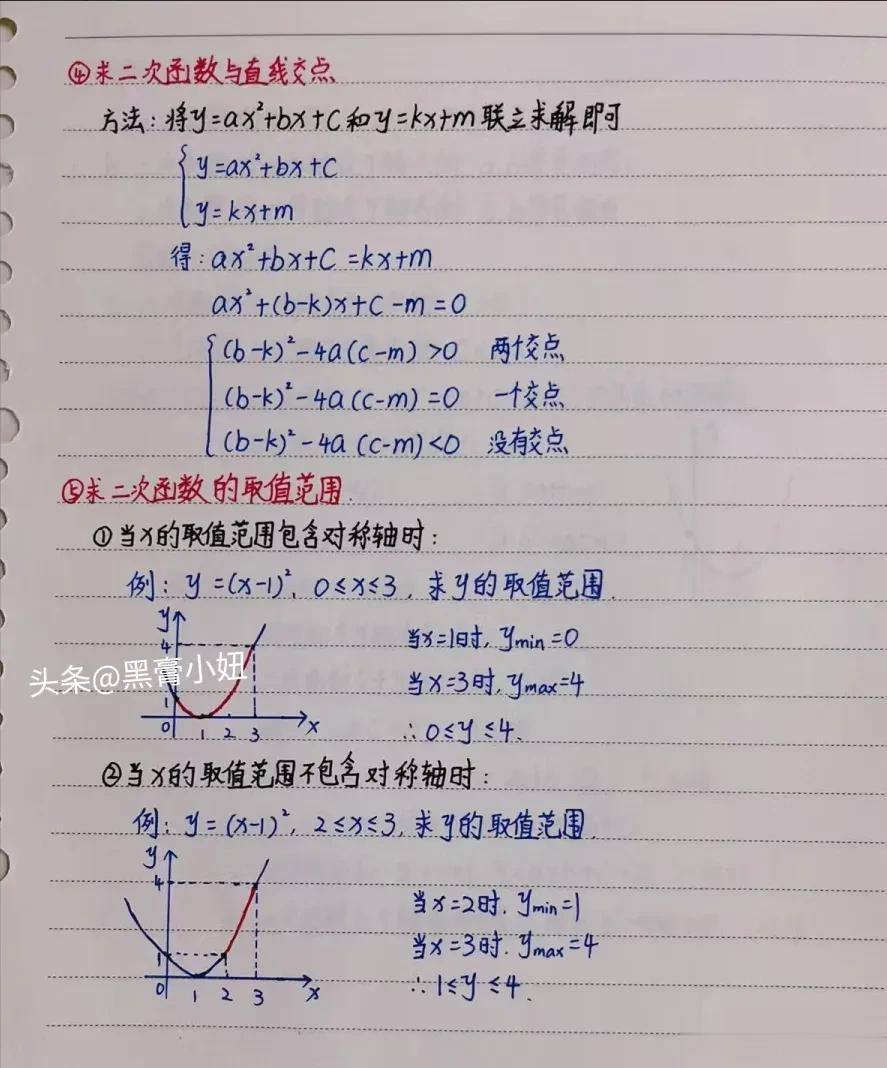 ④求二次函数与直线交点
方法：将y=ax²+bx+C和y=kx+m联立求解即可
y=ax²+bx+C
y=kx+m
得：ax²+bx+C=kx+m
ax²+(b-k)x+C-m=0
(b-k)²-4a(c-m)>0 两个交点
(b-k)²-4a(c-m)=0 一个交点
(b-k)²-4a(c-m)<0 没有交点
⑤求二次函数的取值范围.
①当x的取值范围包含对称轴时：
例：y=(x-1)²，0≤x≤3，求y的取值范围.
y
4
1
0 1 2 3 x
当x=1时，ymin=0
当x=3时，ymax=4
∴0≤y≤4.
头条@黑膏小妞
②当x的取值范围不包含对称轴时：
例：y=(x-1)²，2≤x≤3，求y的取值范围.
y
4
1
0 1 2 3 x
当x=2时，ymin=1
当x=3时，ymax=4
∴1≤y≤4.